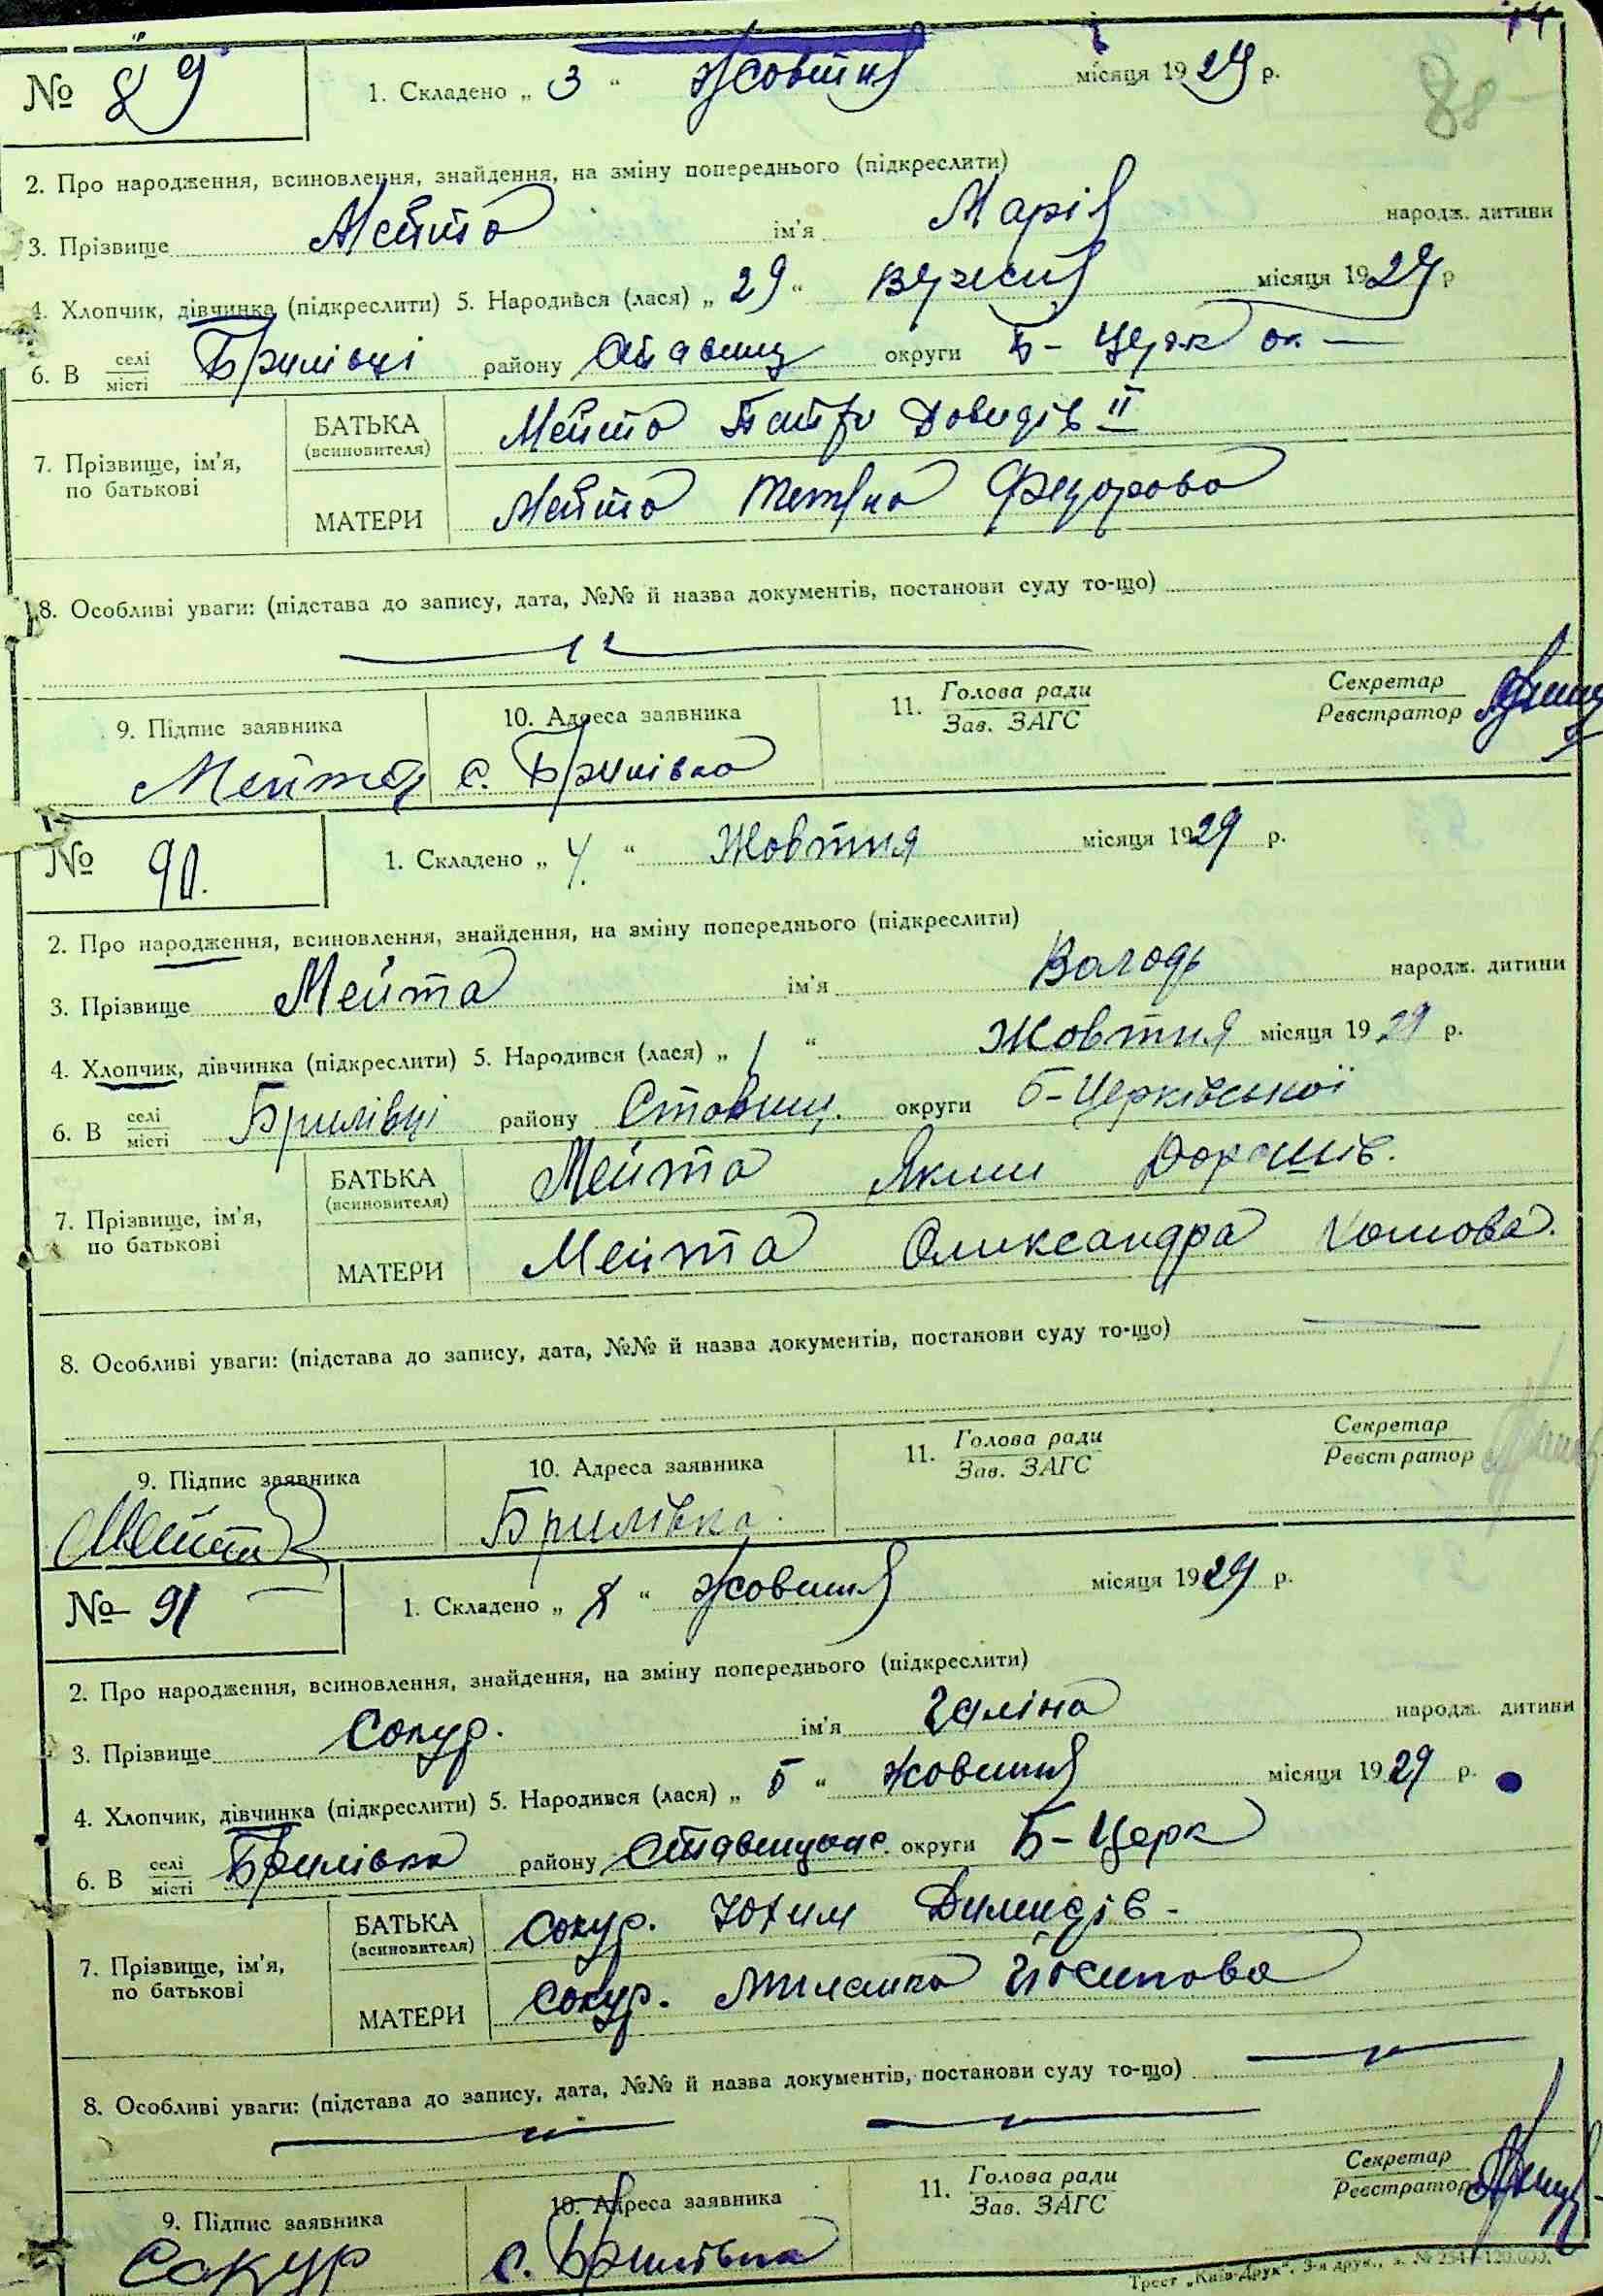 № 89
1. Складено „ 3 “ Жовтня місяця 1929 р.
88
2. Про народження, всиновлення, знайдення, на зміну попереднього (підкреслити)
3. Прізвище Мейта ім'я Марія народж. дитини
4. Хлопчик, дівчинка (підкреслити) 5. Народився (лася) „ 29 “ вересня місяця 1929 р
6. В селі/місті Брилівці району Ставищ округи Б-Церк ок
7. Прізвище, ім'я, по батькові
БАТЬКА (всиновителя) Мейта Петро Довидів II
МАТЕРИ Мейта Тетяна Федорова
8. Особливі уваги: (підстава до запису, дата, №№ й назва документів, постанови суду то-що)
9. Підпис заявника 10. Адреса заявника 11. Голова ради/Зав. ЗАГС Секретар/Реєстратор
Мейта с. Брилівка
№ 90.
1. Складено „ 4. “ Жовтня місяця 1929 р.
2. Про народження, всиновлення, знайдення, на зміну попереднього (підкреслити)
3. Прізвище Мейта ім'я Володь народж. дитини
4. Хлопчик, дівчинка (підкреслити) 5. Народився (лася) „ 1 “ Жовтня місяця 1929 р.
6. В селі/місті Брилівці району Ставищ. округи Б-Церківської
7. Прізвище, ім'я, по батькові
БАТЬКА (всиновителя) Мейта Яким Дорошів.
МАТЕРИ Мейта Олександра Хомова.
8. Особливі уваги: (підстава до запису, дата, №№ й назва документів, постанови суду то-що)
9. Підпис заявника 10. Адреса заявника 11. Голова ради/Зав. ЗАГС Секретар/Реєстратор
Мейта Брилівка
№ 91
1. Складено „ 8 “ Жовтня місяця 1929 р.
2. Про народження, всиновлення, знайдення, на зміну попереднього (підкреслити)
3. Прізвище Сокур. ім'я Галіна народж. дитини
4. Хлопчик, дівчинка (підкреслити) 5. Народився (лася) „ 5 “ жовтня місяця 1929 р.
6. В селі/місті Брилівка району округи Б-Церк
7. Прізвище, ім'я, по батькові
БАТЬКА (всиновителя) Сокур. Юхим
МАТЕРИ Сокур. Йосипова
8. Особливі уваги: (підстава до запису, дата, №№ й назва документів, постанови суду то-що)
9. Підпис заявника 10. Адреса заявника 11. Голова ради/Зав. ЗАГС Секретар/Реєстратор
Сокур с. Брилівка
Трест „Київ-Друк“, 3-я друк., з. № 254 120.000.